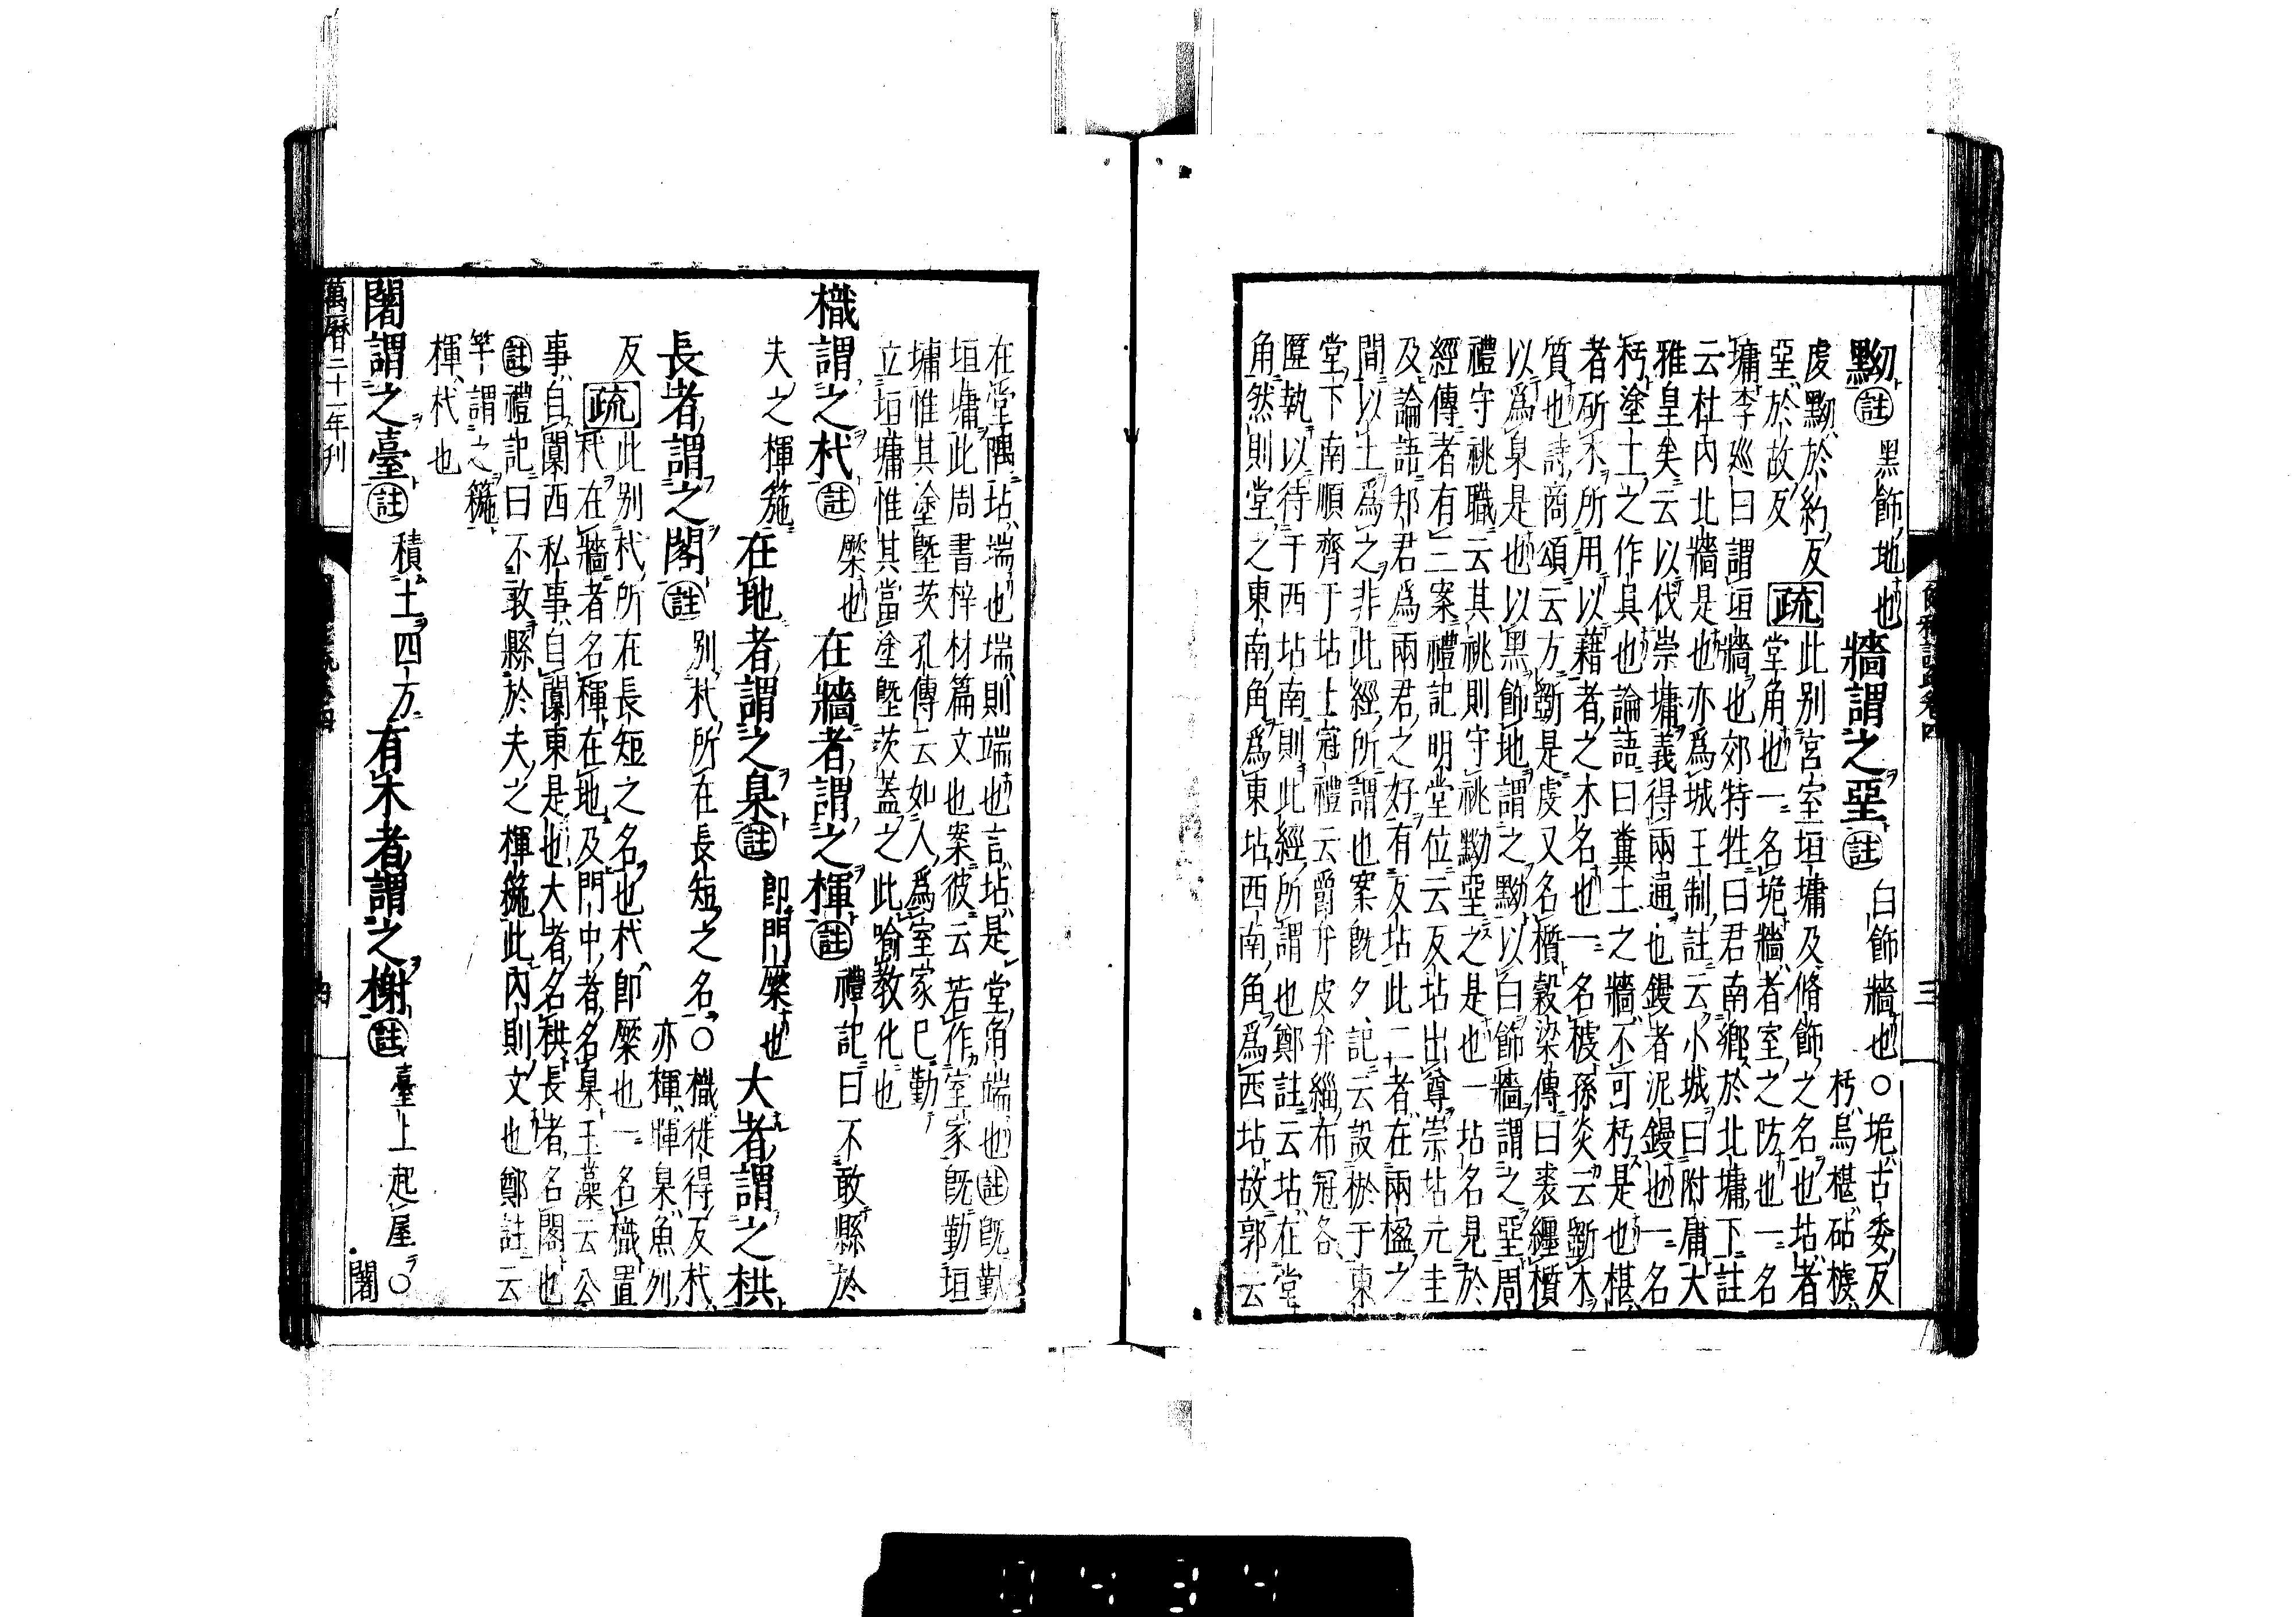 黝註黑飾地也牆謂之堊註白飾牆也〇垝古委反
杇烏椹砧榩
虔黝於約反疏此別宮室垣墉及脩飾之名也坫者
堊於故反堂角也一名垝牆者室之防也一名
墉李巡曰謂垣牆也郊特牲曰君南鄉於北墉下註
云杜內北牆是也亦爲城王制註云小城曰附庸大
雅皇矣云以伐崇墉義得兩通也鏝者泥鏝也一名
杇塗土之作具也論語曰糞土之牆不可杇是也椹
者斫木所用以藉者之木名也一名榩孫炎云斲木
質也詩商頌云方斲是虔又名榰穀梁傳曰裘纏榰
以爲臬是也以黑飾地謂之黝以白飾牆謂之堊周
禮守祧職云其祧則守祧黝堊之是也一坫名見於
經傳者有三案禮記明堂位云反坫出尊崇坫元圭
及論語邦君爲兩君之好有反坫此二者在兩楹之
間以土爲之非此經所謂也案旣夕記云設棜于東
堂下南順齊于坫上冠禮云爵弁皮弁緇布冠各
匴執以待于西坫南則此經所謂也鄭註云坫在堂
角然則堂之東南角爲東坫西南角爲西坫故郭云
在堂隅坫端也端則端也言坫是堂角端也註旣勤
垣墉此周書梓材篇文也案彼云若作室家旣勤垣
墉惟其塗墍茨孔傳云如人爲室家巳勤
立垣墉惟其當塗墍茨蓋之此喻教化也
樴謂之杙註橜也在牆者謂之楎註禮記曰不敢縣於
夫之楎箷在地者謂之臬註卽門橜也大者謂之栱
長者謂之閣註別杙所在長短之名〇樴徙得反杙
亦楎暉臬魚列
反疏此別杙所在長短之名也杙卽橜也一名樴置
杙在牆者名楎在地及門中者名臬玉藻云公
事自闑西私事自闑東是也大者名栱長者名閣也
註禮記曰不敢縣於夫之楎箷此內則文也鄭註云
竿謂之箷
楎杙也
闍謂之臺註積土四方有木者謂之榭註臺上起屋〇
闍
萬曆二十一年刊
三